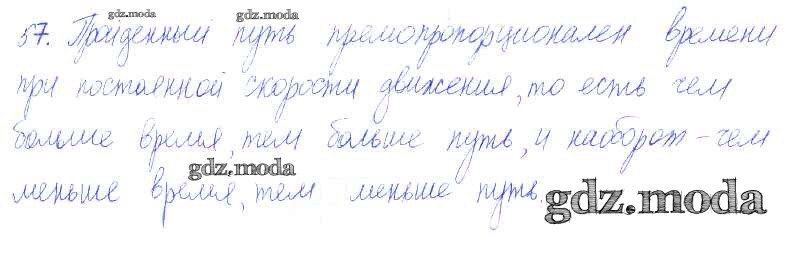 gdz.moda
57. Пройденный путь прямопропорционален времени
при постоянной скорости движения, то есть чем
больше время, тем больше путь, и наоборот - чем
gdz.moda
меньше время, тем меньше путь.
gdz.moda